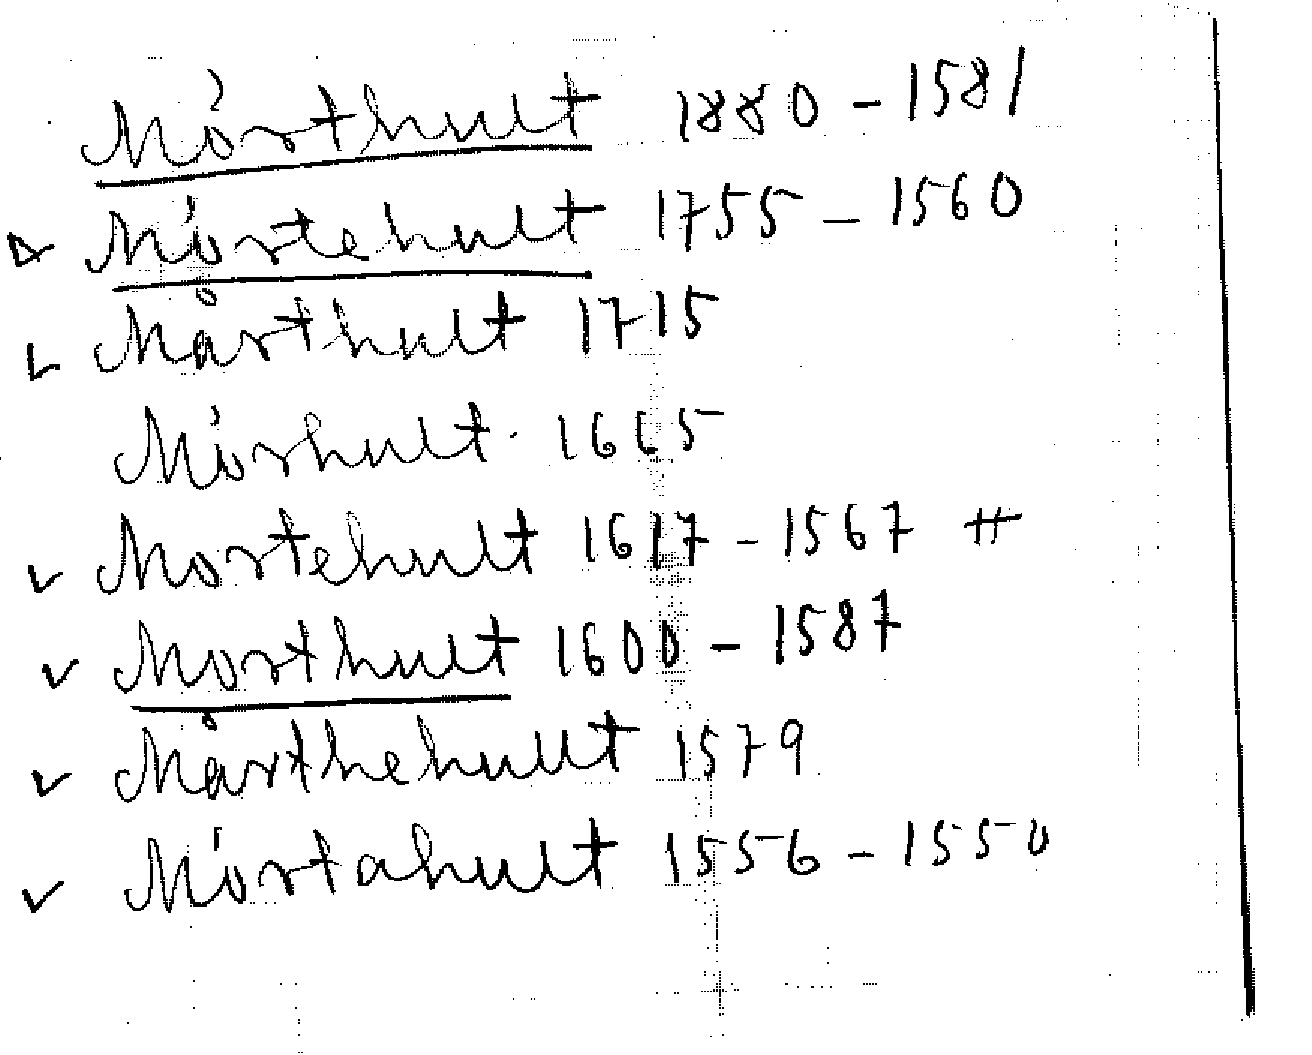 Mörthult 1880 - 1581
Mörtehult 1755 - 1560
Mårthult 1715
Mörhult 1665
Mortehult 1617 - 1567 #
Morthult 1600 - 1587
Mårthehullt 1579
Mörtahult 1556 - 1550